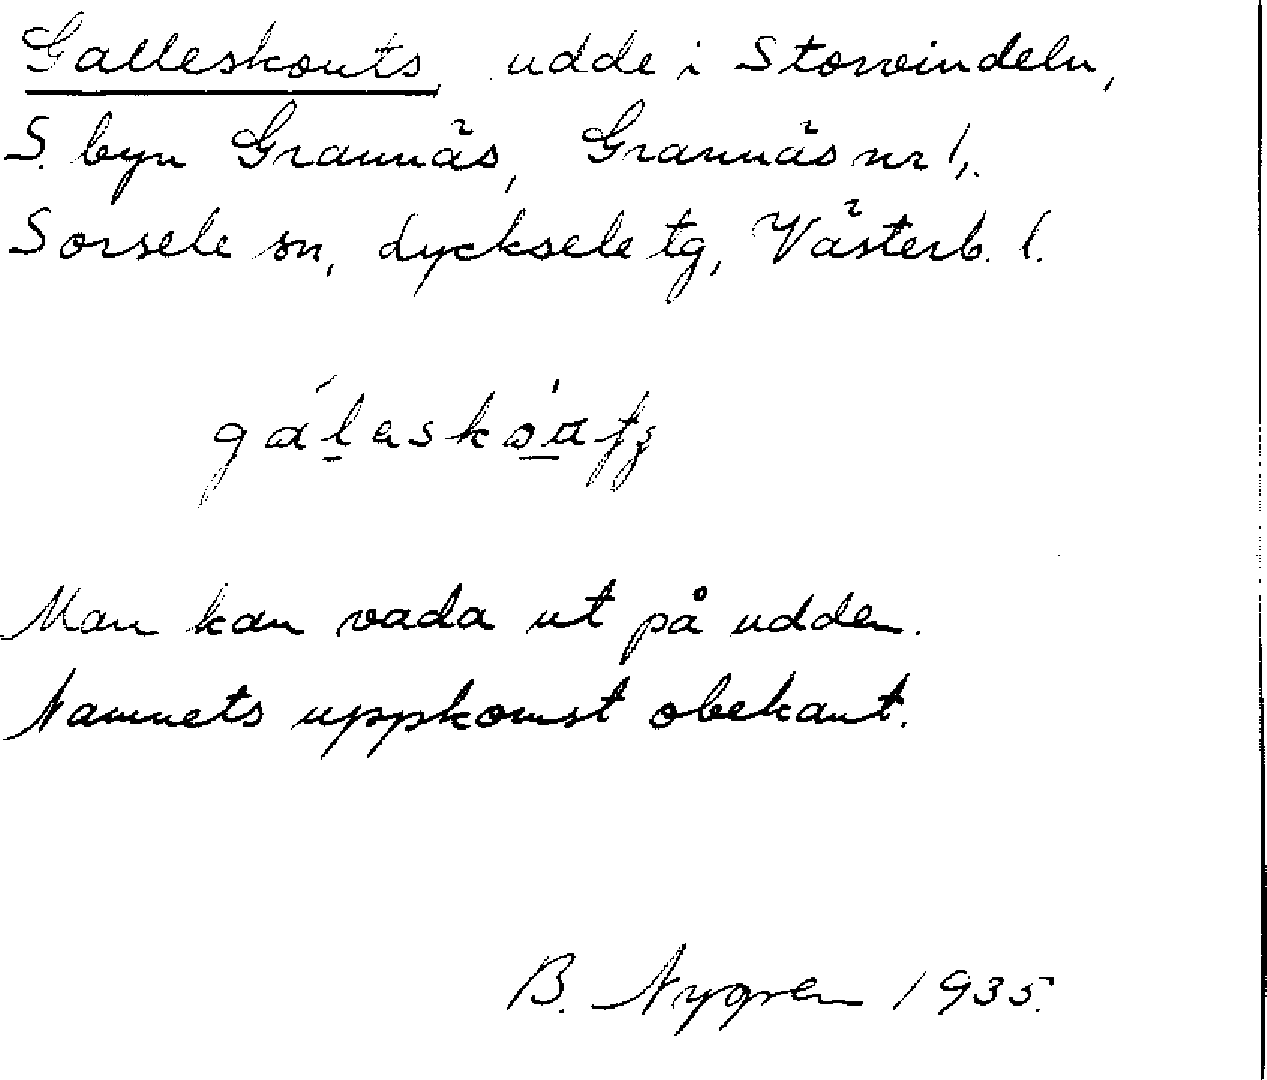 Galleskouts, udde i Storvindeln,
S. byn Grannäs, Grannäs nr 1,.
Sorsele sn, Lycksele tg, Västerb. l.
Man kan vada ut på udden.
Namnets uppkomst obekant.
B. Nygren 1935.